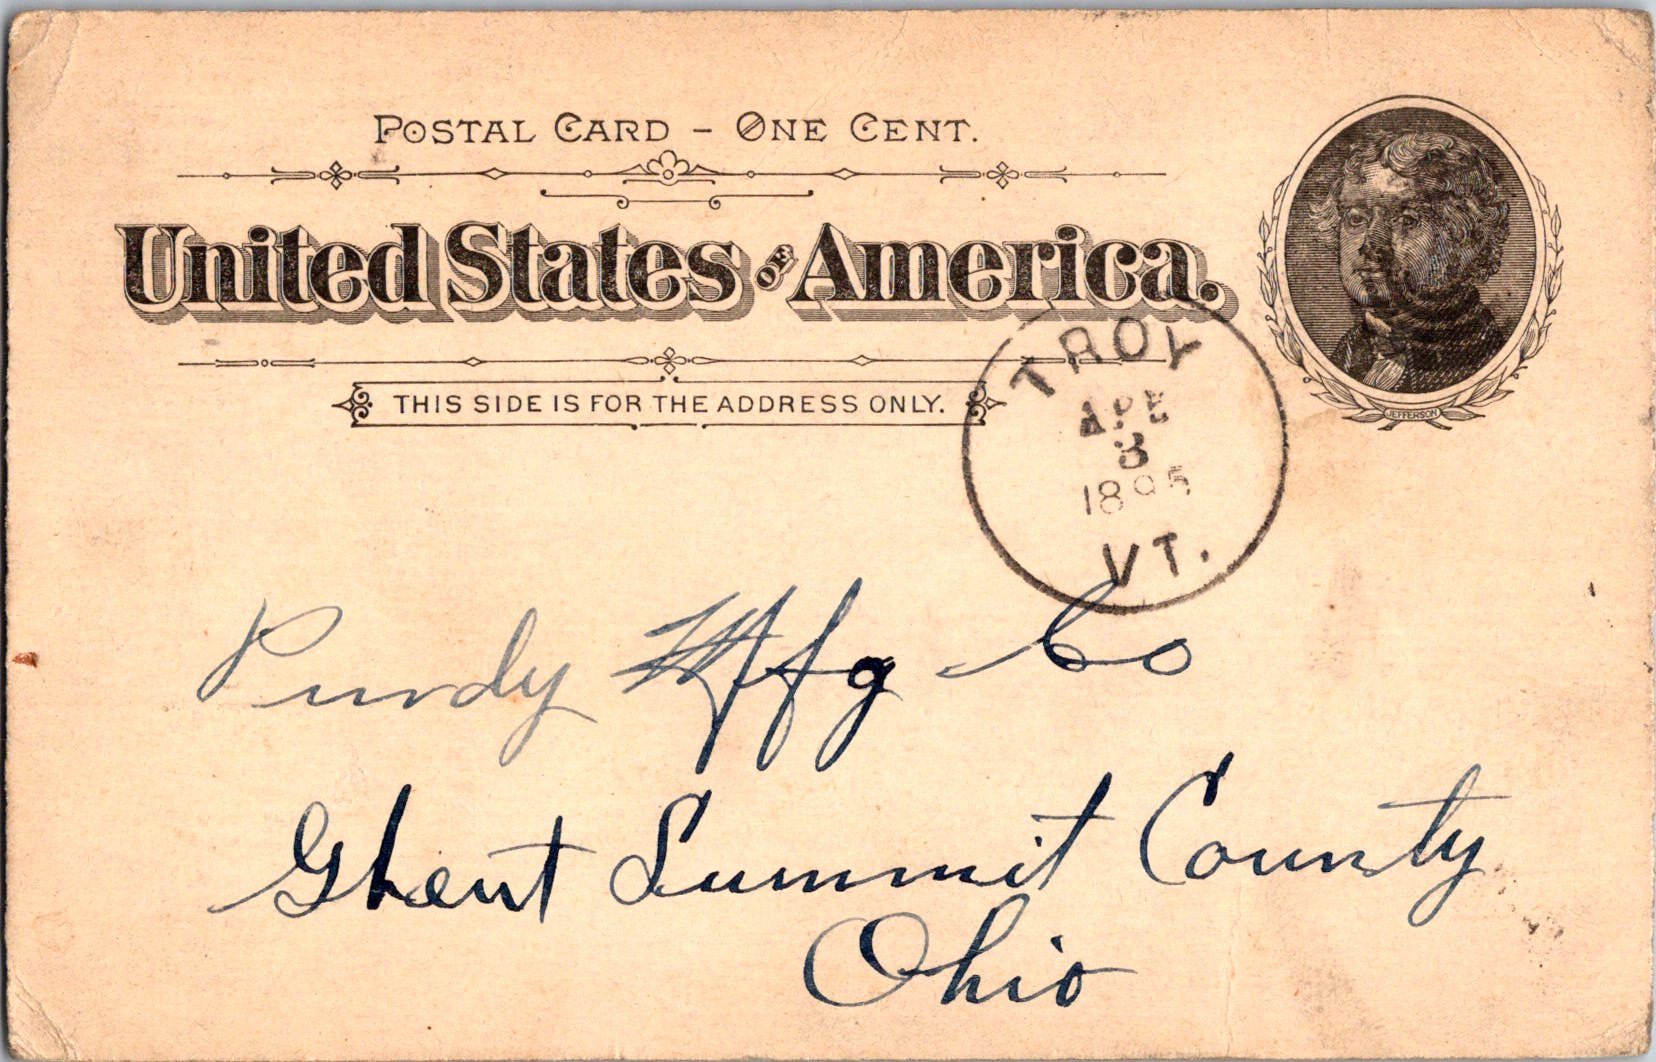 POSTAL CARD – ONE CENT.
United States OF America.
JEFFERSON
THIS SIDE IS FOR THE ADDRESS ONLY.
TROY
APR
3
1895
VT.
Purdy Mfg Co
Ghent Summit County
Ohio